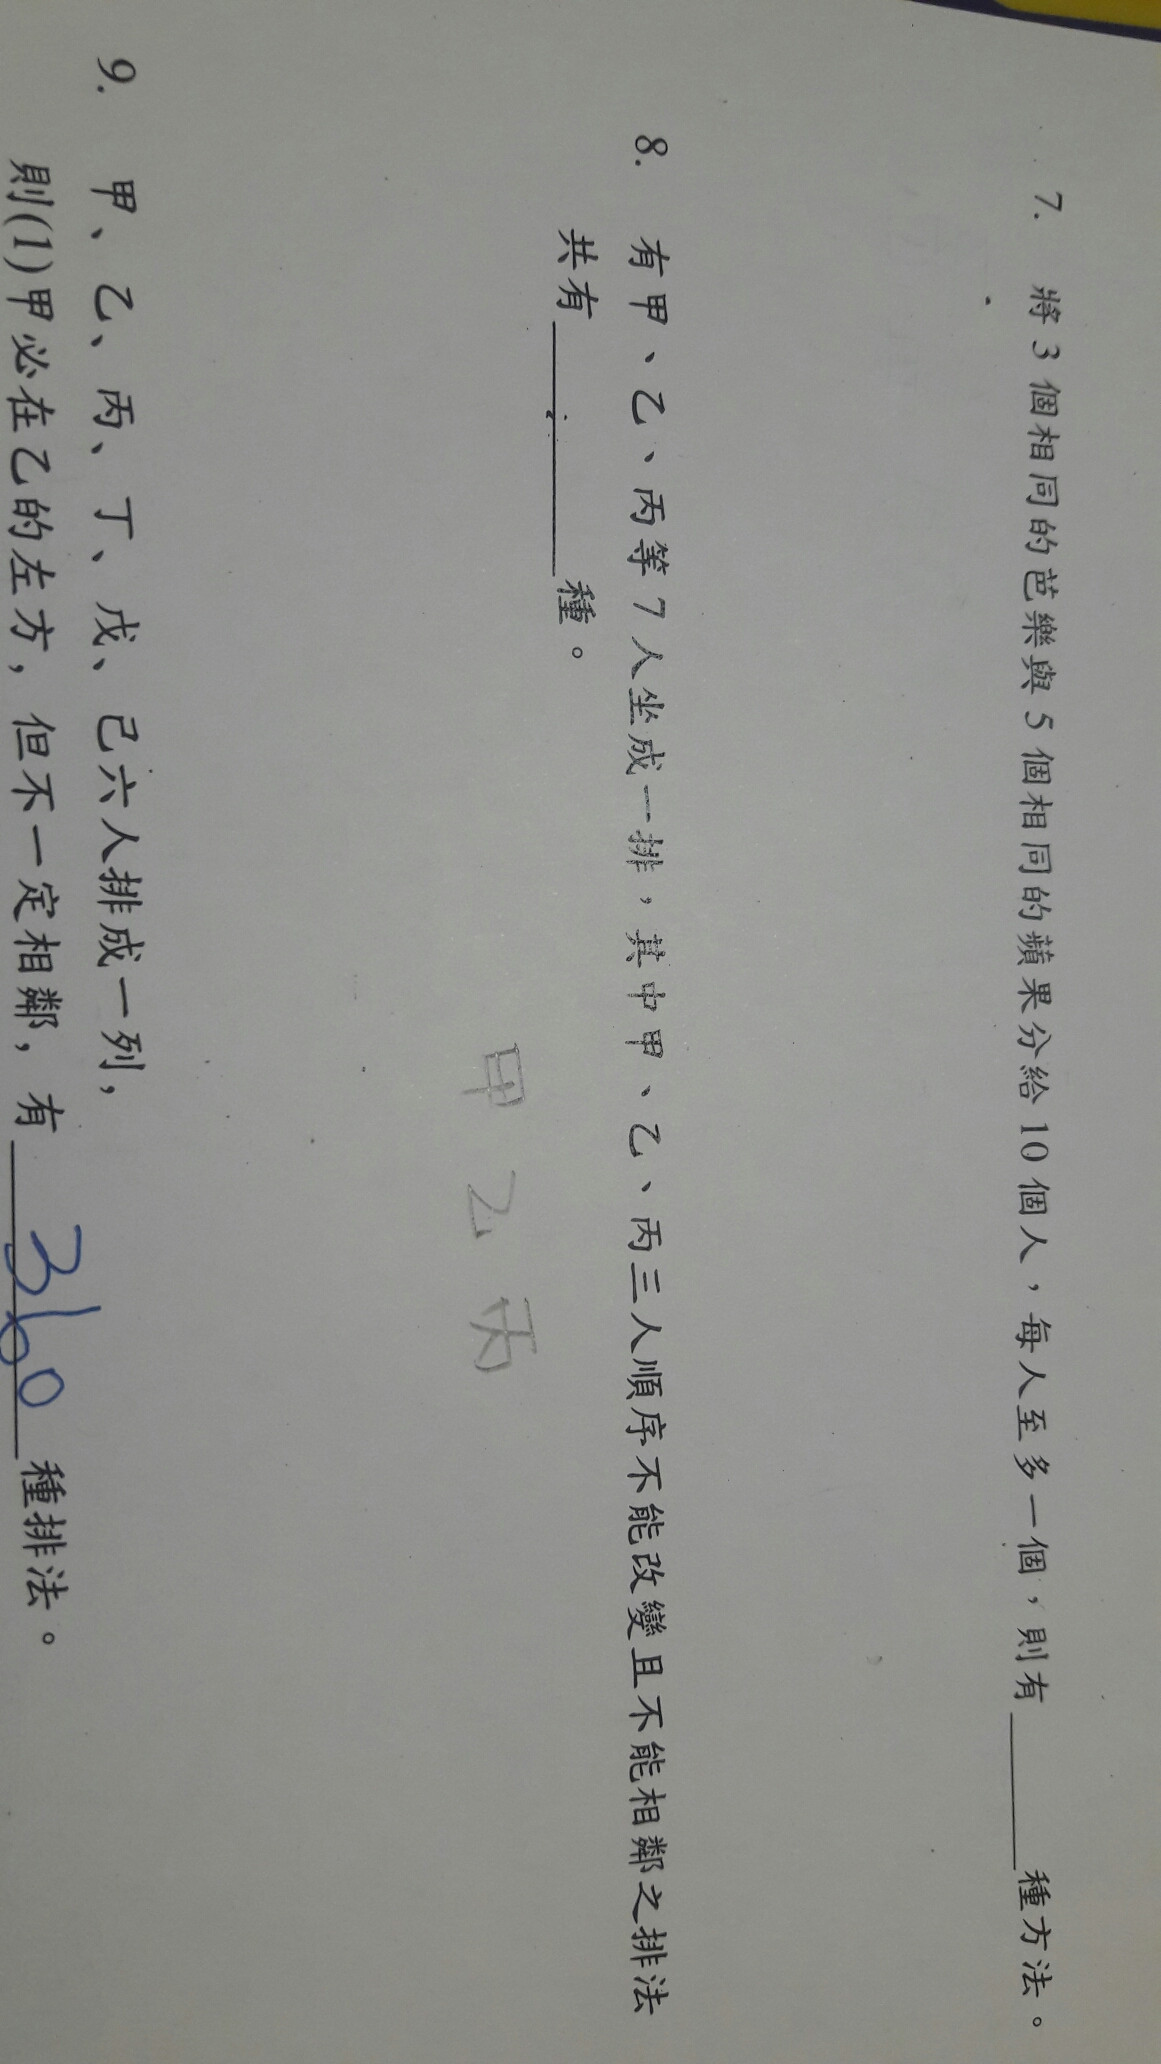 7. 將3個相同的芭樂與5個相同的蘋果分給10個人，每人至多一個，則有______種方法。
8. 有甲、乙、丙等7人坐成一排，其中甲、乙、丙三人順序不能改變且不能相鄰之排法
共有______種。
甲 乙 丙
9. 甲、乙、丙、丁、戊、己六人排成一列，
則(1)甲必在乙的左方，但不一定相鄰，有 360 種排法。